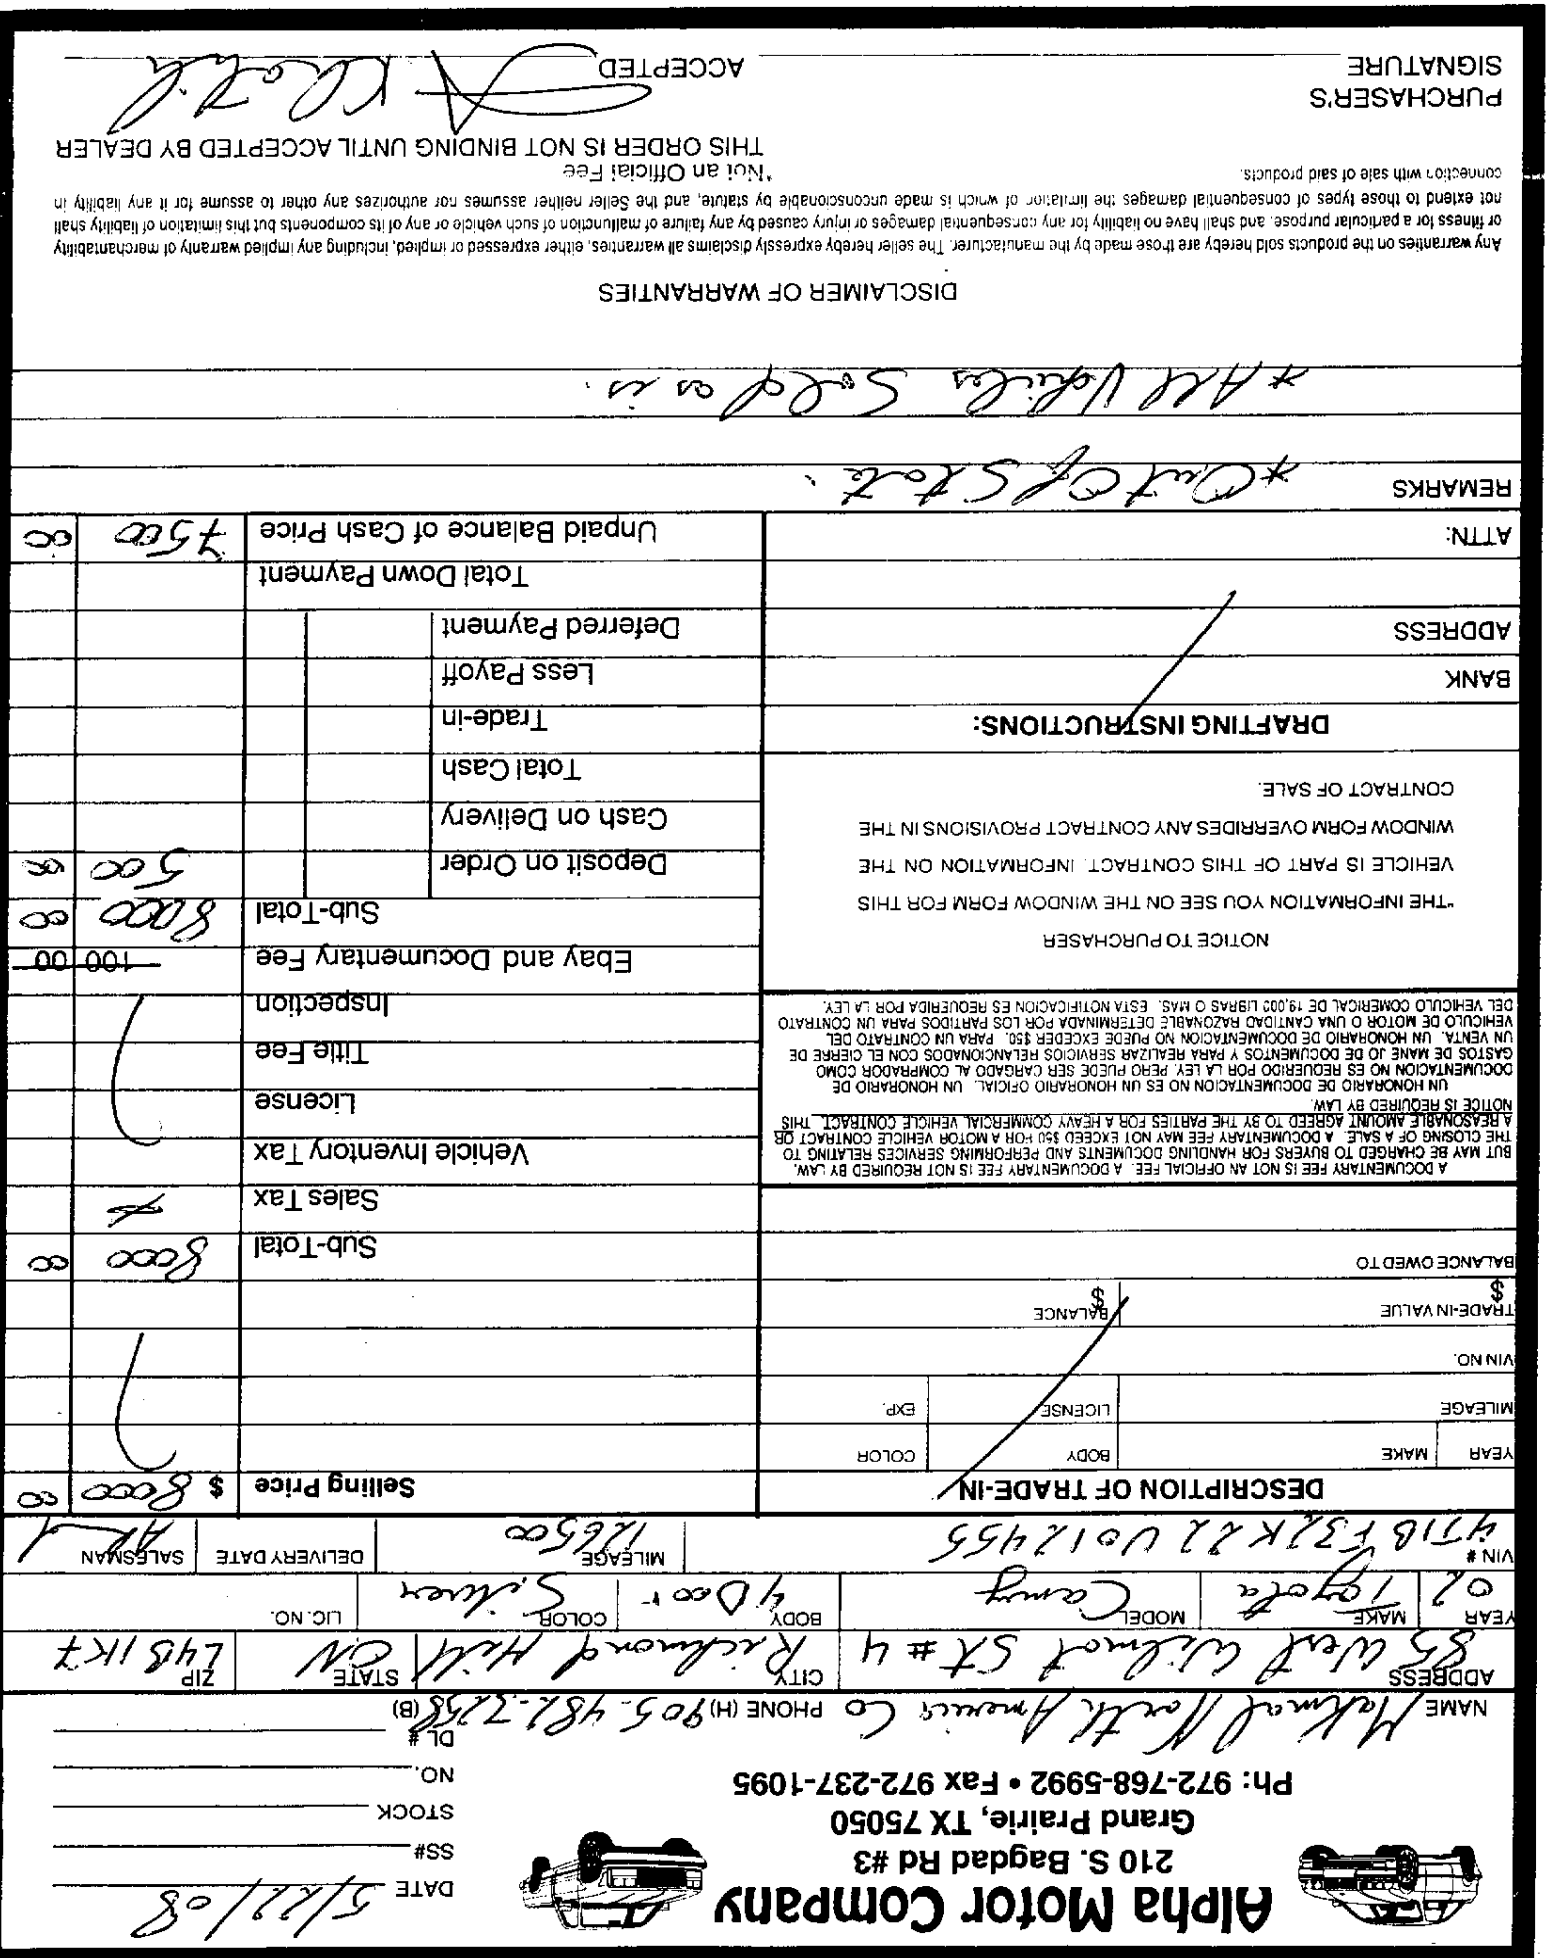 Alpha Motor Company
210 S. Bagdad Rd #3
Grand Prairie, TX 75050
Ph: 972-768-5992 • Fax 972-237-1095
DATE 5/22/08
SS#
STOCK
NO.
DL #
NAME Makmal North America Co PHONE (H) 905-482-3258 (B)
ADDRESS 85 West Wilmot St #4 CITY Richmond Hill STATE ON ZIP L4B1K7
YEAR 02 MAKE Toyota MODEL Camry BODY 4 Door COLOR Silver LIC. NO.
VIN # 4T1BF32K22U012455 MILEAGE 126500 DELIVERY DATE SALESMAN
DESCRIPTION OF TRADE-IN
YEAR MAKE BODY COLOR
MILEAGE LICENSE EXP.
VIN NO.
TRADE-IN VALUE $ BALANCE $
BALANCE OWED TO
A DOCUMENTARY FEE IS NOT AN OFFICIAL FEE. A DOCUMENTARY FEE IS NOT REQUIRED BY LAW,
BUT MAY BE CHARGED TO BUYERS FOR HANDLING DOCUMENTS AND PERFORMING SERVICES RELATING TO
THE CLOSING OF A SALE. A DOCUMENTARY FEE MAY NOT EXCEED $50 FOR A MOTOR VEHICLE CONTRACT OR
A REASONABLE AMOUNT AGREED TO BY THE PARTIES FOR A HEAVY COMMERCIAL VEHICLE CONTRACT. THIS
NOTICE IS REQUIRED BY LAW.
UN HONORARIO DE DOCUMENTACION NO ES UN HONORARIO OFICIAL. UN HONORARIO DE
DOCUMENTACION NO ES REQUERIDO POR LA LEY, PERO PUEDE SER CARGADO AL COMPRADOR COMO
GASTOS DE MANE JO DE DOCUMENTOS Y PARA REALIZAR SERVICIOS RELANCIONADOS CON EL CIERRE DE
UN VENTA. UN HONORARIO DE DOCUMENTACION NO PUEDE EXCEDER $50. PARA UN CONTRATO DEL
VEHICULO DE MOTOR O UNA CANTIDAD RAZONABLE DETERMINADA POR LOS PARTIDOS PARA UN CONTRATO
DEL VEHICULO COMERICAL DE 19,000 LIBRAS O MAS. ESTA NOTIFICACION ES REQUERIDA POR LA LEY.
NOTICE TO PURCHASER
"THE INFORMATION YOU SEE ON THE WINDOW FORM FOR THIS
VEHICLE IS PART OF THIS CONTRACT. INFORMATION ON THE
WINDOW FORM OVERRIDES ANY CONTRACT PROVISIONS IN THE
CONTRACT OF SALE.
DRAFTING INSTRUCTIONS:
BANK
ADDRESS
ATTN:
Selling Price $ 8000 00
Sub-Total 8000 00
Sales Tax
Vehicle Inventory Tax
License
Title Fee
Inspection
Ebay and Documentary Fee 100 00
Sub-Total 8000 00
Deposit on Order 500 00
Cash on Delivery
Total Cash
Trade-in
Less Payoff
Deferred Payment
Total Down Payment
Unpaid Balance of Cash Price 7500 00
REMARKS * Out Of State.
* All Vehicles Sold as is.
DISCLAIMER OF WARRANTIES
Any warranties on the products sold hereby are those made by the manufacturer. The seller hereby expressly disclaims all warranties, either expressed or implied, including any implied warranty of merchantability
or fitness for a particular purpose, and shall have no liability for any consequential damages or injury caused by any failure of malfunction of such vehicle or any of its components but this limitation of liability shall
not extend to those types of consequential damages the limitation of which is made unconscionable by statute, and the Seller neither assumes nor authorizes any other to assume for it any liability in
connection with sale of said products.
*Not an Official Fee
THIS ORDER IS NOT BINDING UNTIL ACCEPTED BY DEALER
PURCHASER'S
SIGNATURE
ACCEPTED A Khatib